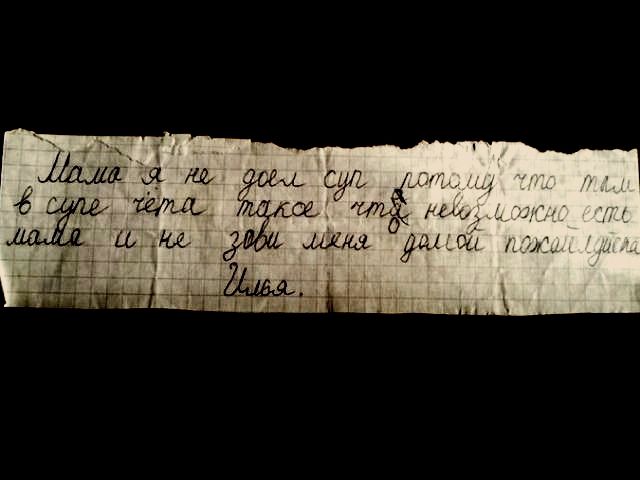 Мама я не доел суп потому что там
в супе чёта такое что невозможно есть.
мама и не зови меня домой пожайлуйста
Илья.